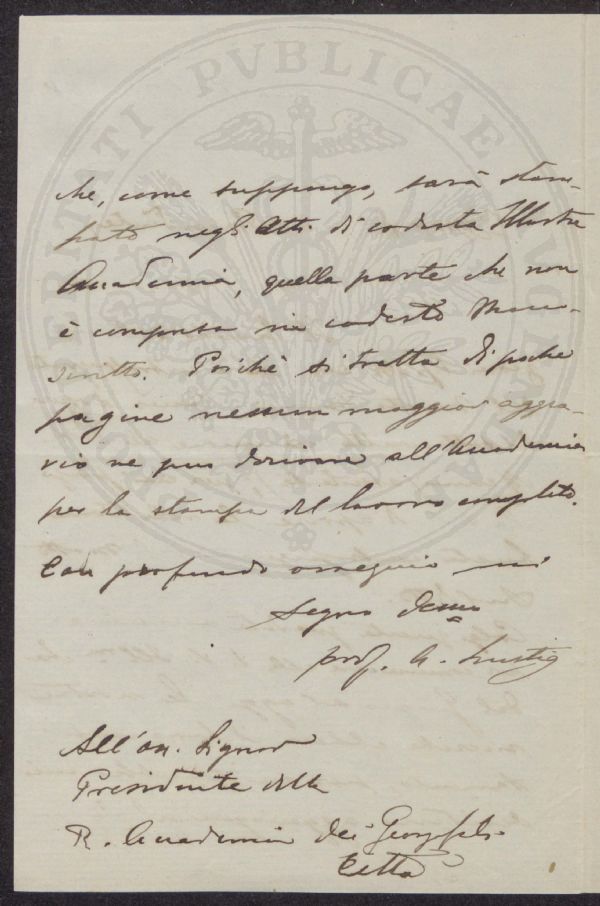 che, come suppongo, sarà stam-
pato negli Atti di codesta Illustre
Accademia, quella parte che non
è compresa in codesto Mano-
scritto. Poichè si tratta di poche
pagine nessun maggior aggra-
vio ne può derivare all'Accademia
per la stampa del lavoro completo.
Con profondo ossequio mi
segno Devmo
prof. A. Lustig
All'on. Signor
Presidente della
R. Accademia dei Georgofili
Città